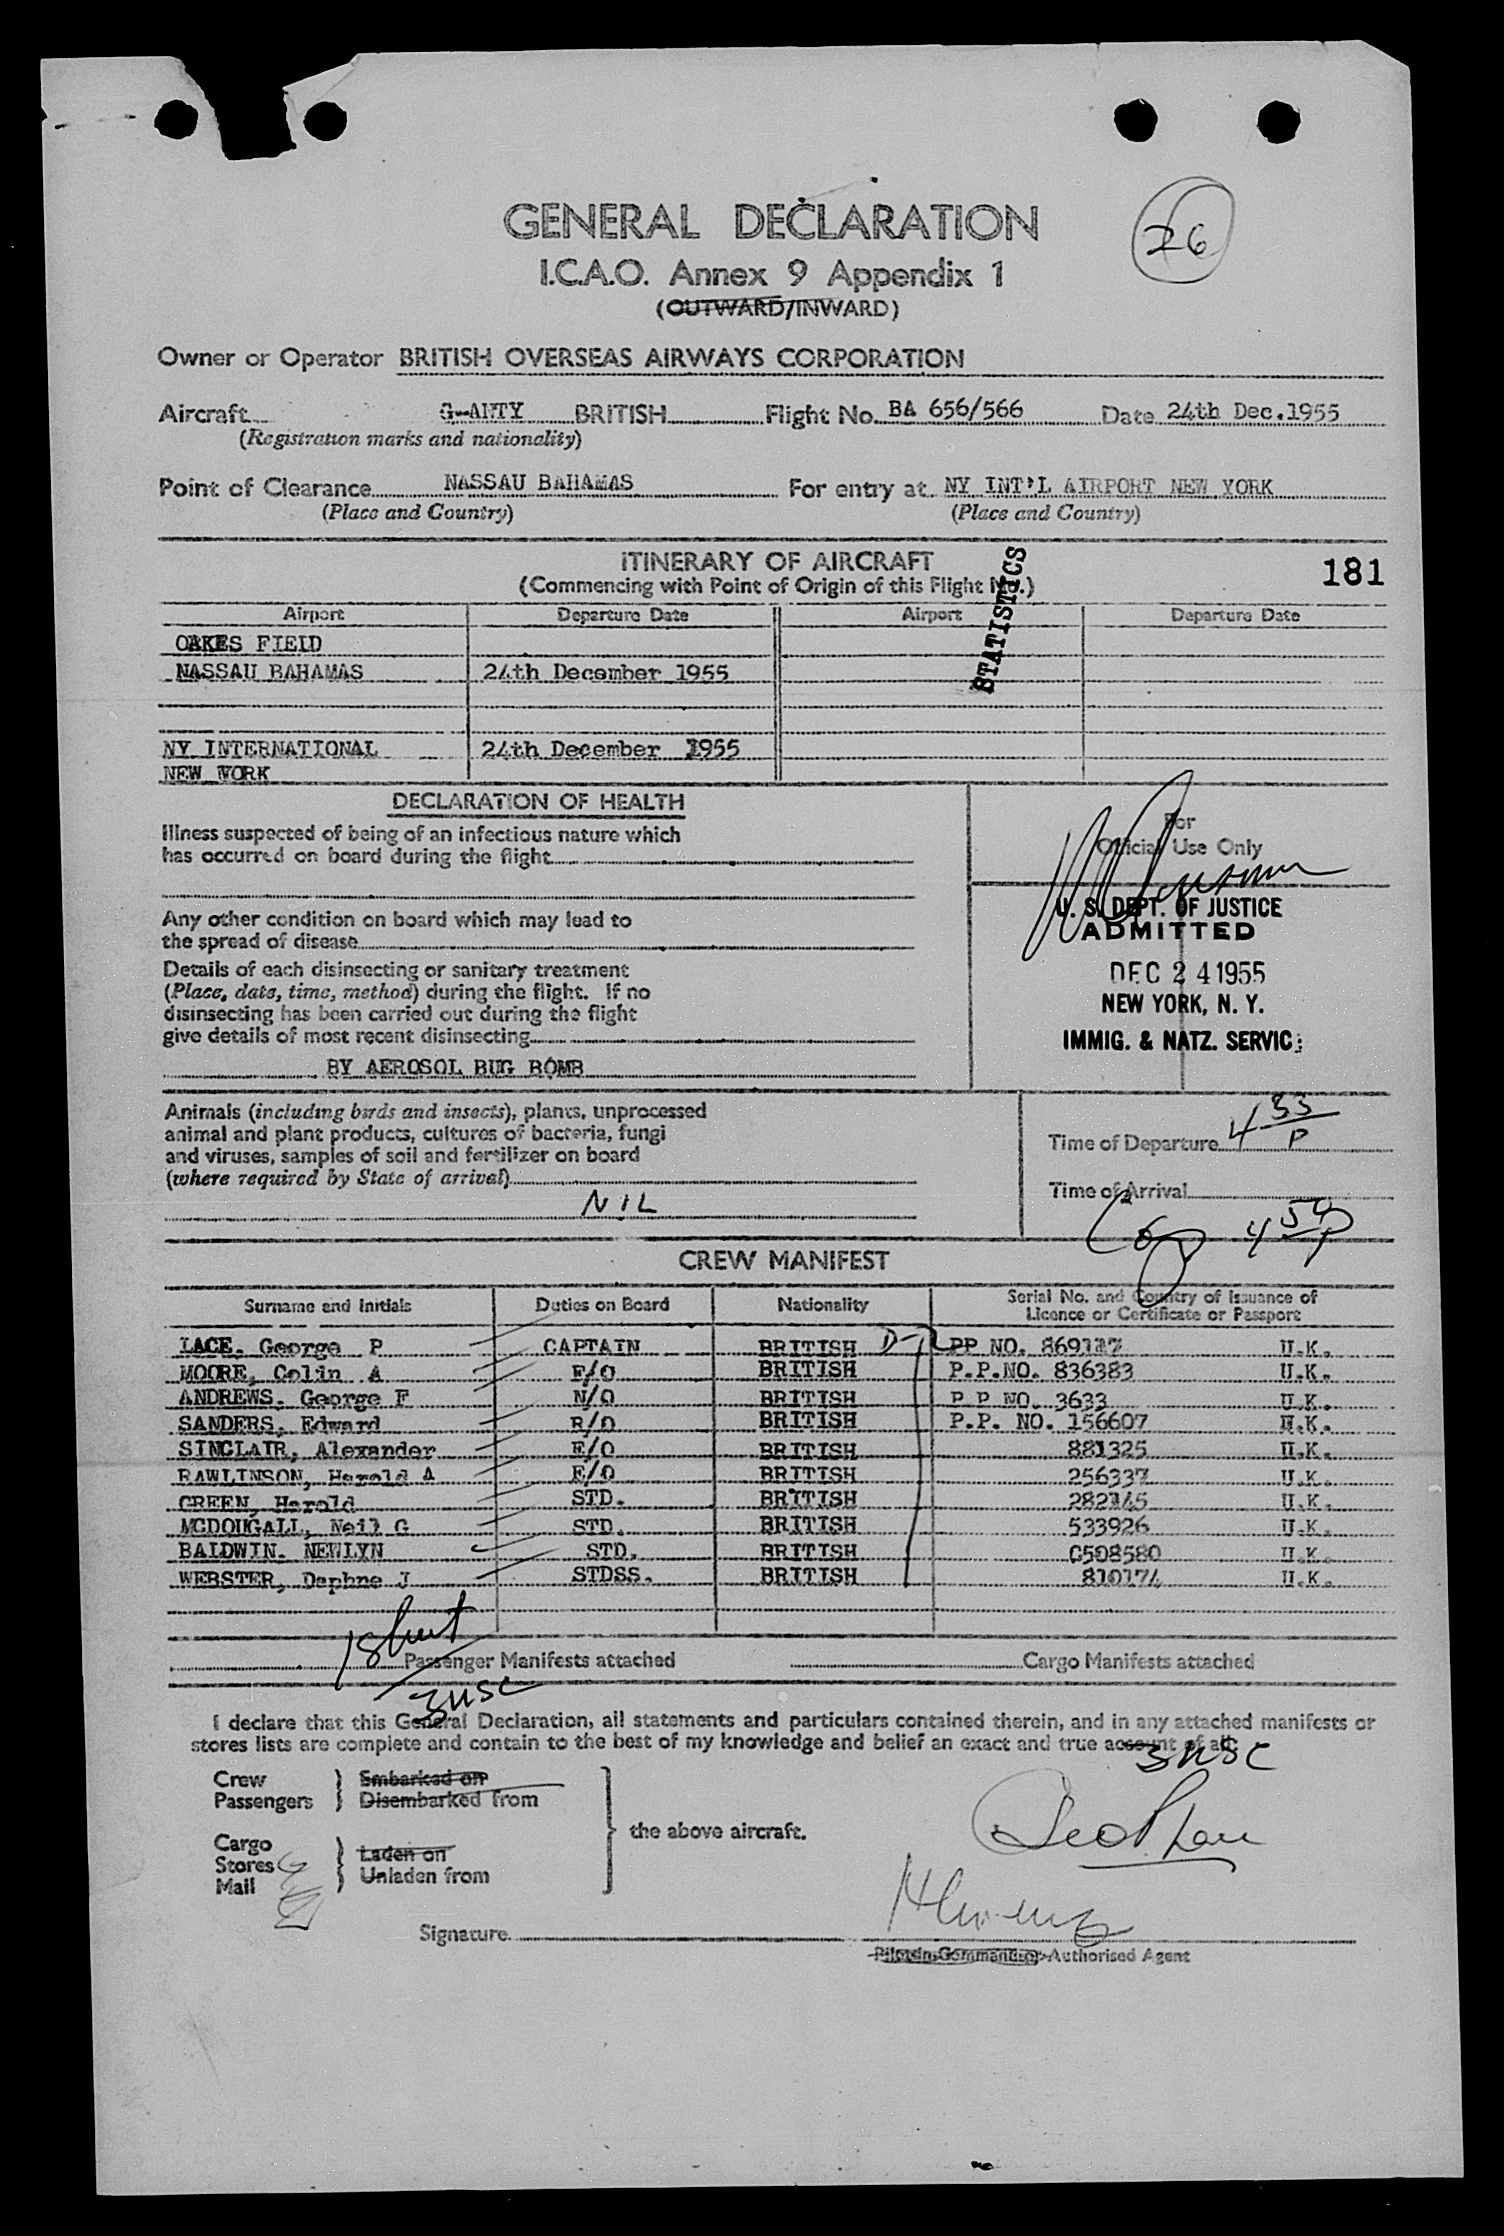 GENERAL DECLARATION
26
I.C.A.O. Annex 9 Appendix 1
(OUTWARD/INWARD)
Owner or Operator BRITISH OVERSEAS AIRWAYS CORPORATION
Aircraft BRITISH Flight No. BA 656/566 Date 24th Dec.1955
(Registration marks and nationality)
Point of Clearance NASSAU BAHAMAS For entry at NY INT'L AIRPORT NEW YORK
(Place and Country) (Place and Country)
ITINERARY OF AIRCRAFT
181
(Commencing with Point of Origin of this Flight No.)
STATISTICS
Airport Departure Date Airport Departure Date
OAKES FIELD
NASSAU BAHAMAS 24th December 1955
NY INTERNATIONAL 24th December 1955
NEW YORK
DECLARATION OF HEALTH
Illness suspected of being of an infectious nature which
has occurred on board during the flight
For
Official Use Only
Any other condition on board which may lead to
the spread of disease
U. S. DEPT. OF JUSTICE
ADMITTED
DEC 24 1955
NEW YORK, N. Y.
IMMIG. & NATZ. SERVICE
Details of each disinsecting or sanitary treatment
(Place, date, time, method) during the flight. If no
disinsecting has been carried out during the flight
give details of most recent disinsecting
BY AEROSOL BUG BOMB
Animals (including birds and insects), plants, unprocessed
animal and plant products, cultures of bacteria, fungi
and viruses, samples of soil and fertilizer on board
(where required by State of arrival)
NIL
Time of Departure 4 33 P
Time of Arrival
4 54 P
CREW MANIFEST
Surname and Initials Duties on Board Nationality Serial No. and Country of Issuance of
Licence or Certificate or Passport
LACE. George P CAPTAIN BRITISH PP NO. U.K.
MOORE, Colin A F/O BRITISH P.P.NO. 836383 U.K.
ANDREWS. George F N/O BRITISH P.P NO. 3633 U.K.
SANDERS, Edward R/O BRITISH P.P. NO. 156607 U.K.
SINCLAIR, Alexander E/O BRITISH 881325 U.K.
RAWLINSON, Harold A E/O BRITISH 256337 U.K.
GREEN, Harold STD. BRITISH 282145 U.K.
MCDOUGALL, Neil G STD. BRITISH 533926 U.K.
BALDWIN. NEWLYN STD. BRITISH C508580 U.K.
WEBSTER, Daphne J STDSS. BRITISH 810174 U.K.
1 Sheet
Passenger Manifests attached Cargo Manifests attached
3 USC
I declare that this General Declaration, all statements and particulars contained therein, and in any attached manifests or
stores lists are complete and contain to the best of my knowledge and belief an exact and true account of all:
3 USC
Crew Embarked on
Passengers Disembarked from
the above aircraft.
Cargo
Stores
Mail
Laden on
Unladen from
Signature
Pilot-in-Command or Authorised Agent